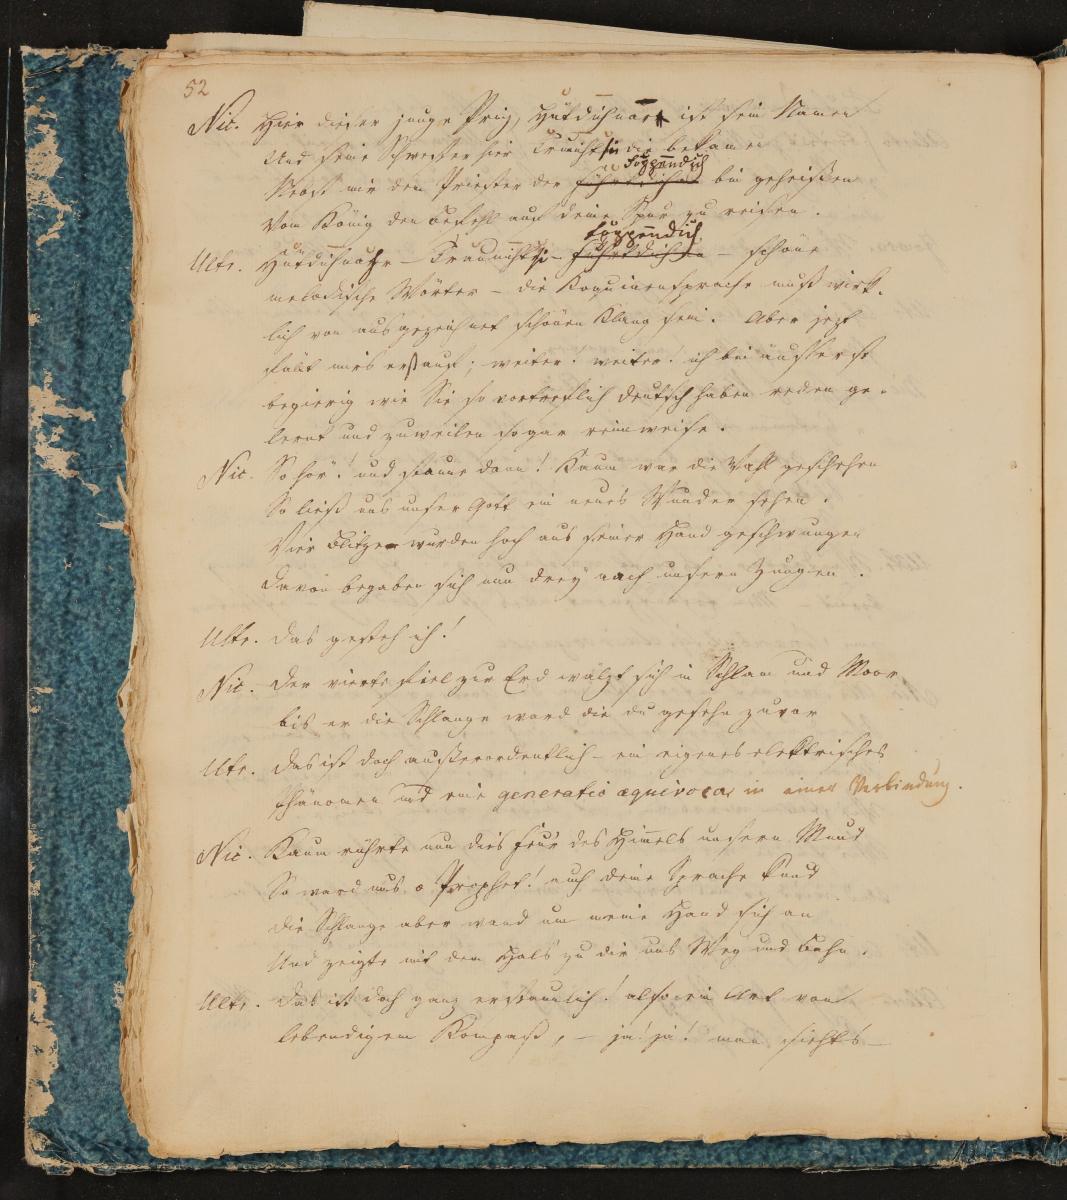 52
Nic. Hier dieser junge Prinz, Hütdichnarr ist sein Namen
Und seine Schwester hier Traunichtsie die bekamen
Foppendich
Nebst mir dem Priester der bin geheißen
Vom König den Befehl auf deine Spur zu reisen.
Foppendich
Ultr. Hütdichnarr – Traunichtsie – – schöne
melodische Wörter – die Koquinensprache muß wirk-
lich von ausgezeichnet schönen Klang sein. Aber jezt
fällt mirs erst auf; weiter! weiter! ich bin äusserst
begierig wie Sie so vortreflich deutsch haben reden ge-
lernt und zuweilen sogar reimweise.
Nic. So hör'! und staune dann! Kaum war die Wahl geschehen
So ließ uns unser Gott ein neues Wunder sehen.
Vier Blitze wurden hoch aus seiner Hand geschwungen
Davon begaben sich nun drey nach unsern Zungen.
Ultr. Das gesteh ich!
Nic. Der vierte fiel zur Erd wälzt sich in Schlam und Moor
bis er die Schlange ward die du gesehn zuvor
Ultr. Das ist doch außerordentlich – ein eigenes elektrisches
Phänomen und eine generatio æquivoca in einer Verbindung.
Nic. Kaum rührte nun dies Feu'r des Himels unsern Mund
So ward uns, o Prophet! auch deine Sprache kund
Die Schlange aber wand um meine Hand sich an
Und zeigte mit dem Hals zu dir uns Weg und Bahn.
Ultr. Das ist doch ganz erstaunlich! also ein Art von
lebendigem Kompaß, – ja! ja! man siehts –